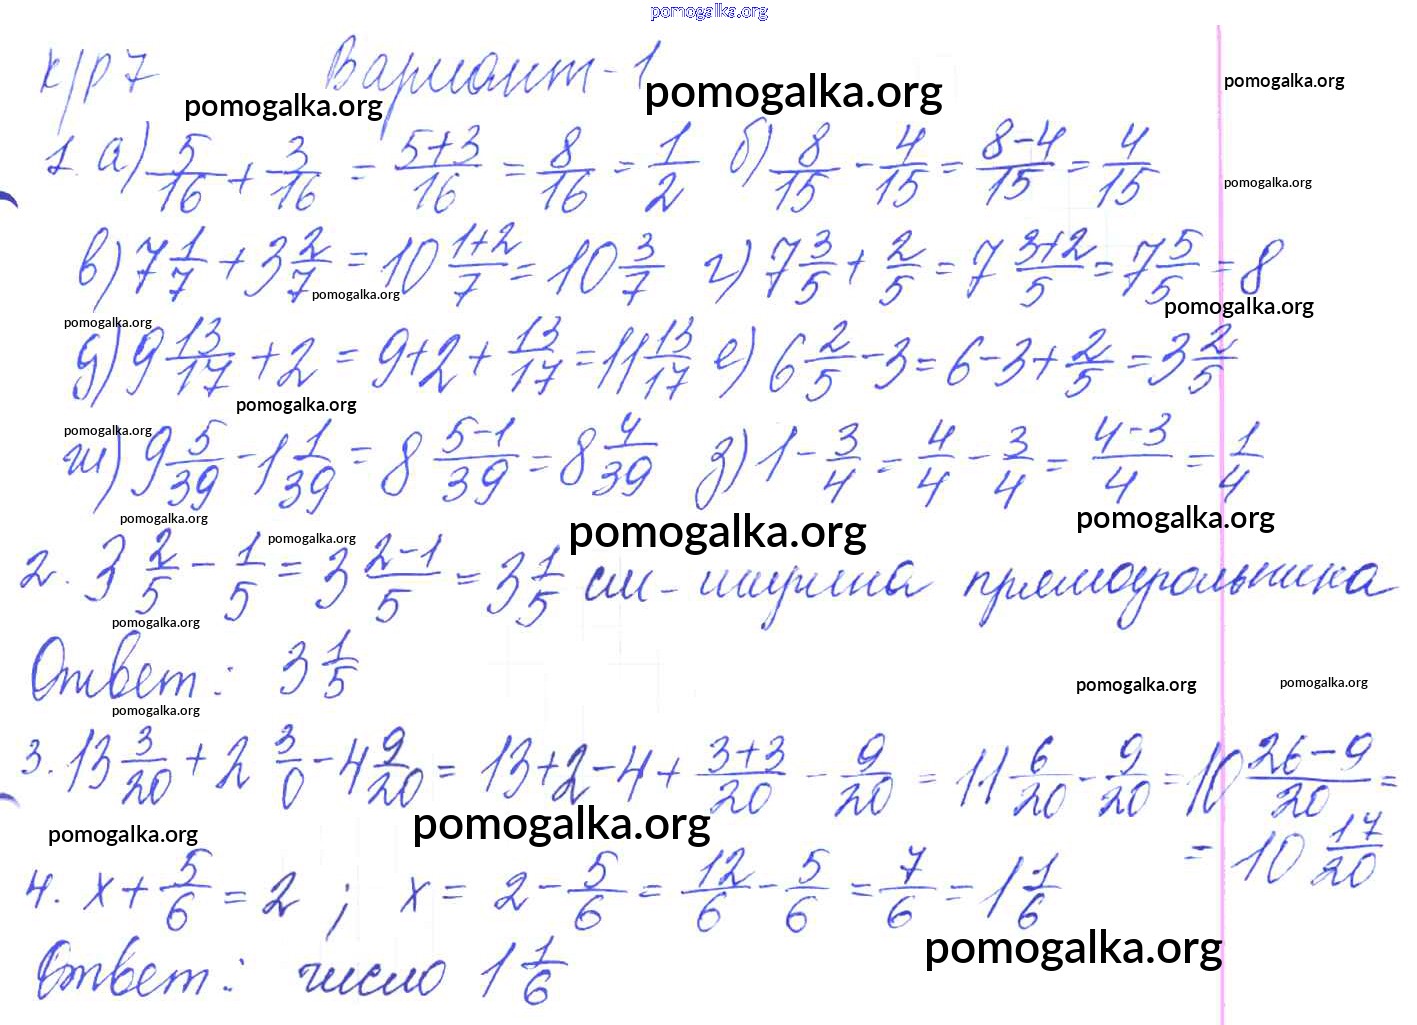 pomogalka.org
к/р 7 Вариант-1
pomogalka.org pomogalka.org pomogalka.org
1. а) 5/16 + 3/16 = (5+3)/16 = 8/16 = 1/2 б) 8/15 - 4/15 = (8-4)/15 = 4/15
pomogalka.org
в) 7 1/7 + 3 2/7 = 10 (1+2)/7 = 10 3/7 г) 7 3/5 + 2/5 = 7 (3+2)/5 = 7 5/5 = 8
pomogalka.org pomogalka.org
pomogalka.org
д) 9 13/17 + 2 = 9+2 + 13/17 = 11 13/17 е) 6 2/5 - 3 = 6-3+ 2/5 = 3 2/5
pomogalka.org
pomogalka.org
ж) 9 5/39 - 1 1/39 = 8 (5-1)/39 = 8 4/39 з) 1 - 3/4 = 4/4 - 3/4 = (4-3)/4 = 1/4
pomogalka.org pomogalka.org pomogalka.org pomogalka.org
2. 3 2/5 - 1/5 = 3 (2-1)/5 = 3 1/5 см - ширина прямоугольника
pomogalka.org
Ответ: 3 1/5
pomogalka.org pomogalka.org
pomogalka.org
3. 13 3/20 + 2 3/0 - 4 9/20 = 13+2-4+ (3+3)/20 - 9/20 = 11 6/20 - 9/20 = 10 (26-9)/20 =
pomogalka.org pomogalka.org
= 10 17/20
4. x + 5/6 = 2 ; x = 2 - 5/6 = 12/6 - 5/6 = 7/6 = 1 1/6
pomogalka.org
Ответ: число 1 1/6